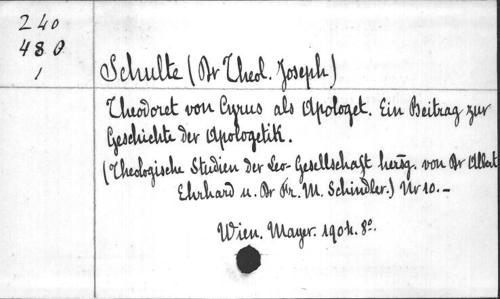 240
480
1
Schulte (Dr Theol. Joseph)
Theodoret von Cyrus als Apologet. Ein Beitrag zur
Geschichte der Apologetik.
(Theologische Studien der Leo-Gesellschaft hersg. von Dr Albert
Ehrhard u. Dr Fr. M. Schindler.) Nr 10.-
Wien. Mayer. 1904. 8º.